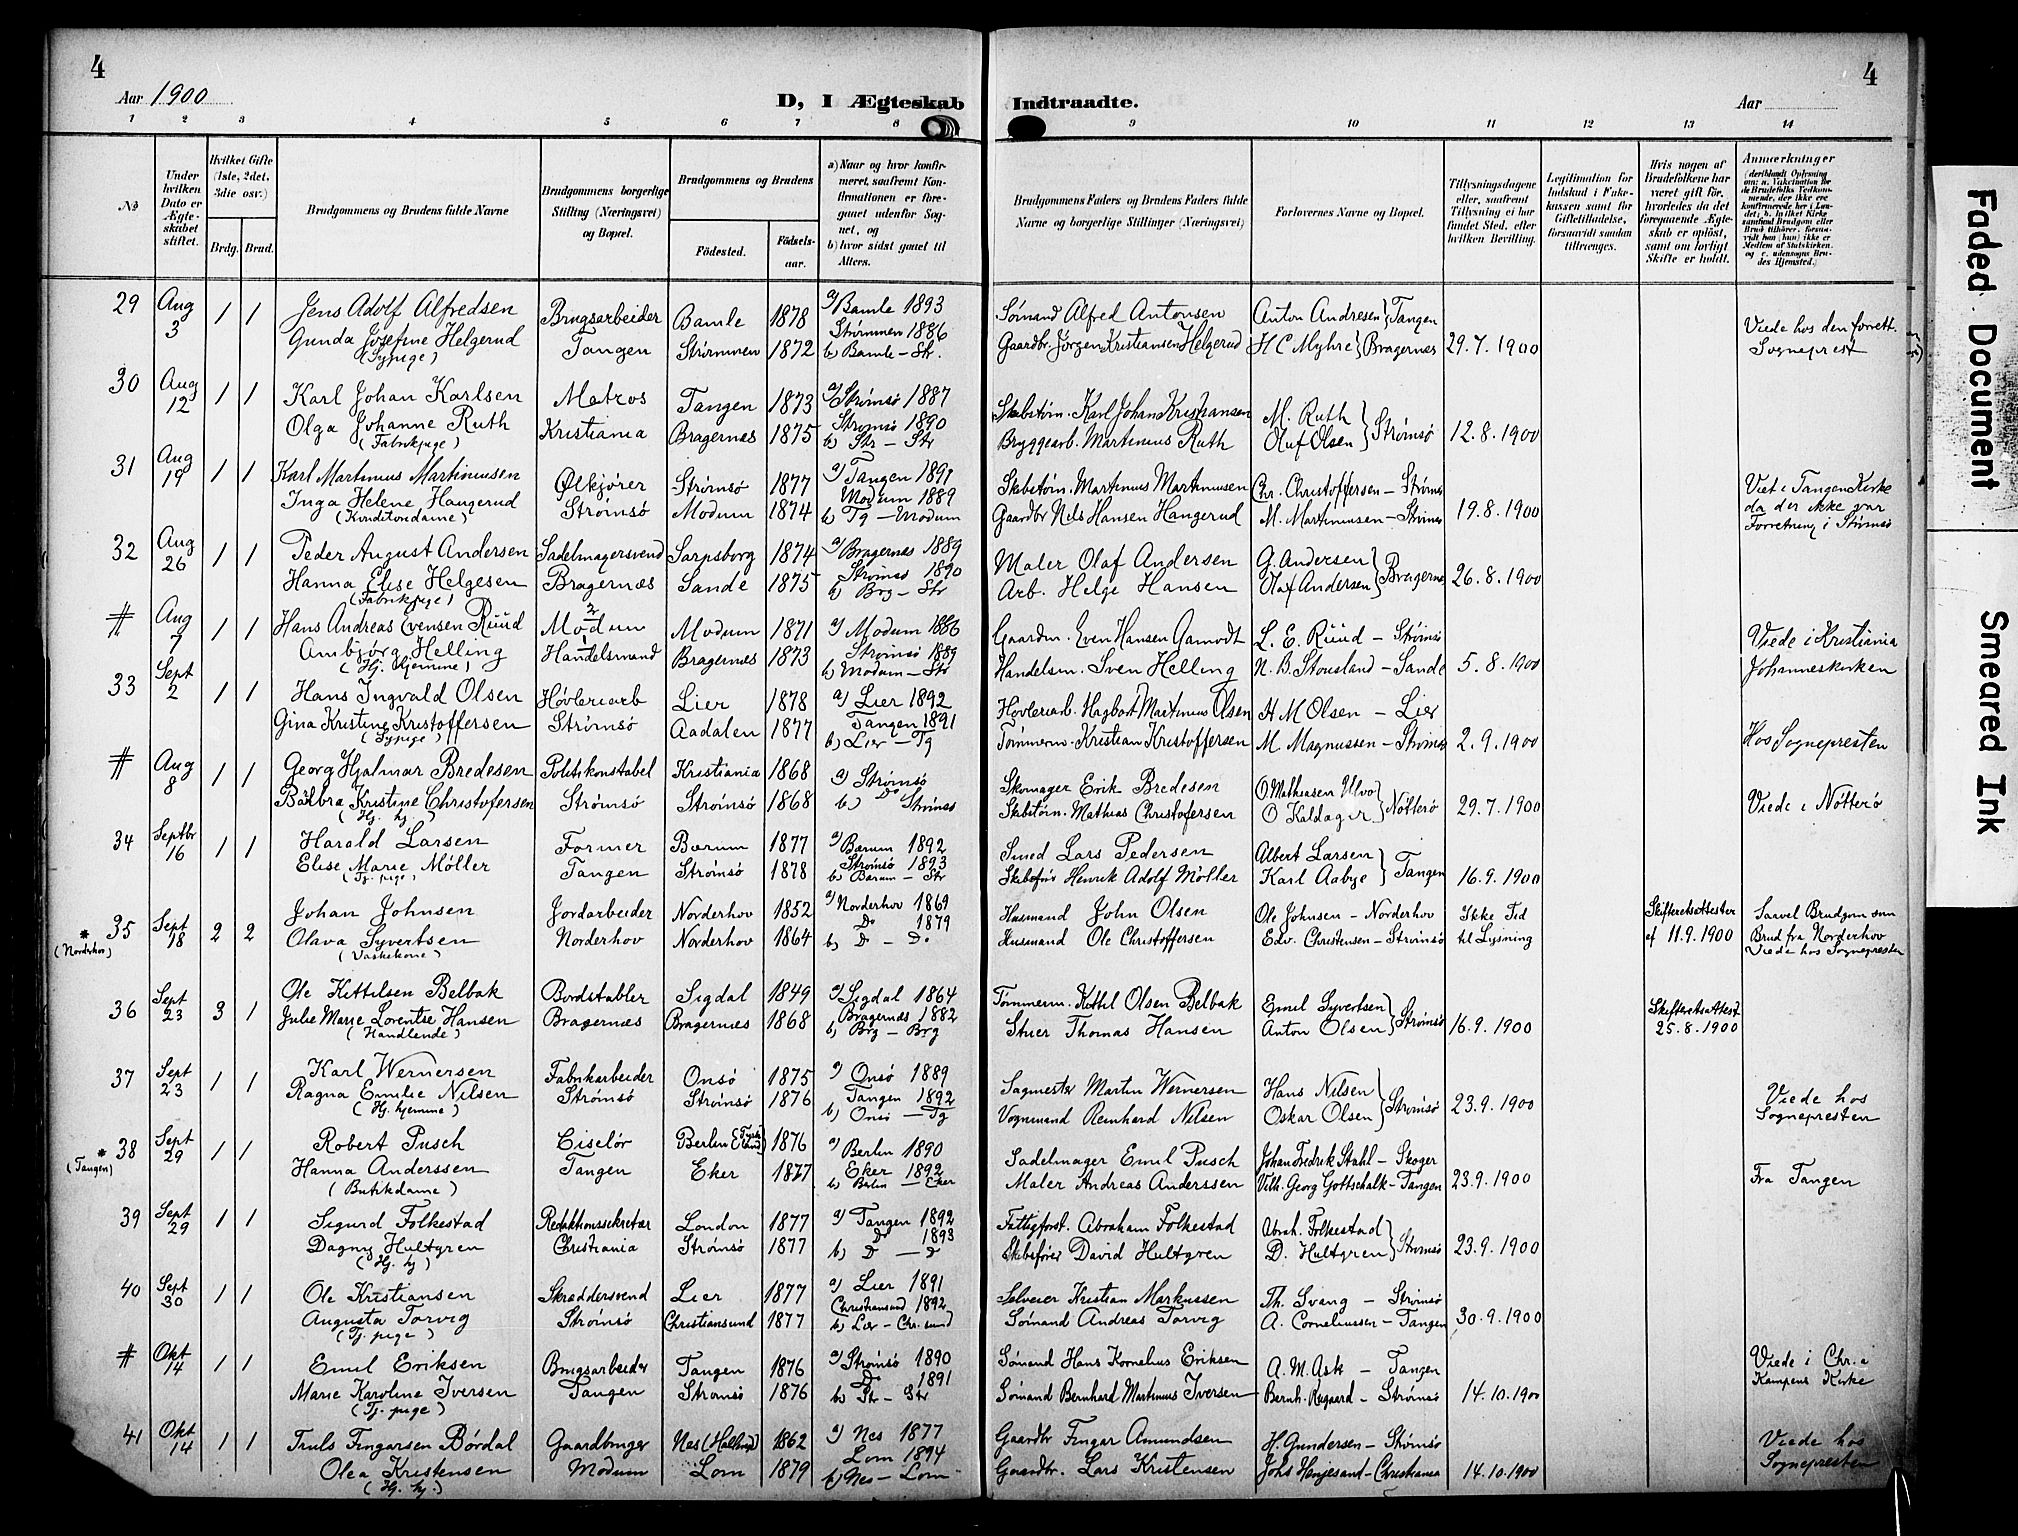 4
Aar 1900
D, I Ægteskab Indtraadte.
Aar
4
1 2 3 4 5 6 7 8 9 10 11 12 13 14
No
Under hvilken Dato er Ægteskabet stiftet.
Hvilket Gifte (1ste, 2det, 3die osv.)
Brdg. Brud.
Brudgommens og Brudens fulde Navne
Brudgommens borgerlige Stilling (Næringsvei) og Bopæl.
Brudgommens og Brudens
Fødested.
Fødselsaar.
a) Naar og hvor konfirmeret, saafremt Konfirmationen er foregaaet udenfor Sognet, og
b) hvor sidst gaaet til Alters.
Brudgommens Faders og Brudens Faders fulde Navne og borgerlige Stillinger (Næringsvei)
Forlovernes Navne og Bopæl.
Tillysningsdagene eller, saafremt Tillysning ei har fundet Sted, efter hvilken Bevilling.
Legitimation for Indskud i Enkekassen samt for Giftetilladelse, forsaavidt saadan tiltrænges.
Hvis nogen af Brudefolkene har været gift før, hvorledes da det foregaaende Ægteskab er opløst, samt om lovligt Skifte er holdt.
Anmerkninger
29 Aug 3 1 1 Jens Adolf Alfredsen Brugsarbeider Bamle 1878 a) Bamle 1893 Sømand Alfred Antonsen Anton Andresen } Tangen
Gunda Josefine Helgerud Tangen Strømmen 1872 Strømmen 1886 Gaardbr. Jørgen Kristiansen Helgerud H C Myhre } Bragernes 29.7.1900 Viede hos den forrett. Sogneprest
(Sypige) b) Bamle - Str.
30 Aug 12 1 1 Karl Johan Karlsen Matros Tangen 1873 a) Strømsø 1887 Skibstøm. Karl Johan Kristiansen M. Ruth } Strømsø
Olga Johanne Ruth Kristiania Bragernes 1875 Strømsø 1890 Bryggearb. Martinius Ruth Oluf Olsen 12.8.1900
(Fabrikpige) b) Str - Str
31 Aug 19 1 1 Karl Martinius Martiniussen Ølkjører Strømsø 1877 a) Tangen 1891 Skibstøm. Martinius Martiniussen Chr. Christoffersen - Strømsø Viet i Tangen Kirke
Inga Helene Haugerud Strømsø Modum 1874 Modum 1889 Gaardbr Nels Hansen Haugerud M. Martiniussen - Strømsø 19.8.1900 da der ikke var
(Konditordame) b) Tg - Modum Forretning i Strømsø
32 Aug 26 1 1 Peder August Andersen Sadelmagersvend Sarpsborg 1874 a) Bragernæs 1889 Maler Olaf Andersen G. Andersen } Bragernes
Hanna Elise Helgesen Bragernæs Sande 1875 Strømsø 1890 Arb. Helge Hansen Olaf Andersen 26.8.1900
(Fabrikpige) b) Brg - Str
# Aug 7 1 1 Hans Andreas Evensen Ruud Modum Modum 1871 a) Modum 1886 Gaardm. Even Hansen Aamodt L. E. Ruud - Strømsø Viede i Kristiania
Ambjørg Helling Handelsmand Bragernes 1873 Strømsø 1889 Handelsm. Sven Helling N. B. Stousland - Sande 5.8.1900 Johanneskirken
(Hj. hjemme) b) Modum - Str
33 Sept 2 1 1 Hans Ingvald Olsen Høvleriarb Lier 1878 a) Lier 1892 Høvleriarb. Hagbart Martinius Olsen H M Olsen - Lier
Gina Kristine Kristoffersen Strømsø Aadalen 1877 Tangen 1891 Tømmerm. Kristian Kristoffersen M. Magnussen - Strømsø 2.9.1900 Hos Sognepresten
(Sypige) b) Lier - Tg
# Aug 8 1 1 Georg Hjalmar Bredesen Politikonstabel Kristiania 1868 a) Strømsø Skomager Erik Bredesen O. Mathiasen Ulvo } Nøtterø
Barbra Kristine Christofersen Strømsø Strømsø 1868 b) Do Strømsø Skibstøm. Mathias Christofersen O Kaldager 29.7.1900 Viede i Nøtterø
(Hj. hj.)
34 Septbr 16 1 1 Harald Larsen Former Bærum 1877 a) Bærum 1892 Smed Lars Pedersen Albert Larsen } Tangen
Elise Marie Møller Tangen Strømsø 1878 Strømsø 1893 Skibsfør Henrik Adolf Møller Karl Aabye 16.9.1900
(Tj. pige) b) Bærum - Str
* 35 (Norderhov) Sept 18 2 2 Johan Johnsen Jordarbeider Norderhov 1852 a) Norderhov 1869 Husmand John Olsen Ole Johnsen - Norderhov Ikke Tid Skifteretsattester Saavel Brudgom som
Olava Syvertsen Norderhov Norderhov 1864 Do 1879 Husmand Ole Christoffersen Edv. Christensen - Strømsø til Lysning af 11.9.1900 Brud fra Norderhov
(Vaskekone) b) Do - Do Viede hos Sognepresten
36 Sept 23 3 1 Ole Kittilsen Belbak Bordstabler Sigdal 1849 a) Sigdal 1864 Tømmerm. Kittil Olsen Belbak Emil Syvertsen } Strømsø Skifteretsattest
Julie Marie Lorentse Hansen Bragernæs Bragernæs 1868 Bragernæs 1882 Stuer Thomas Hansen Anton Olsen 16.9.1900 25.8.1900
(Handlende) b) Brg - Brg
37 Sept 23 1 1 Karl Wernersen Fabrikarbeider Onsø 1875 a) Onsø 1889 Sagmester Martin Wernersen Hans Nilsen } Strømsø Viede hos
Ragna Emilie Nilsen Strømsø Strømsø 1876 Tangen 1892 Vognmand Reinhard Nilsen Oskar Olsen 23.9.1900 Sognepresten
(Hj. hjemme) b) Onsø - Tg
* 38 (Tangen) Sept 29 1 1 Robert Pusch Ciselør Berlin (Tyskland) 1876 a) Berlin 1890 Sadelmager Emil Pusch Johan Fredrik Stahl - Skoger
Hanna Anderssen Tangen Eker 1877 Eker 1892 Maler Andreas Anderssen Vilh. Georg Gottschalk - Tangen 23.9.1900 Fra Tangen
(Butikdame) b) Berlin - Eker
39 Sept 29 1 1 Sigurd Folkestad Redaktionssekretær London 1877 a) Tangen 1892 Fattigforst. Abraham Folkestad Abrah. Folkestad } Strømsø
Dagny Hultgren Christiania Strømsø 1877 Do 1893 Skibsfører David Hultgren D. Hultgren 23.9.1900
(Hj. hj) b) D - D
40 Sept 30 1 1 Ole Kristiansen Skræddersvend Lier 1877 a) Lier 1891 Selveier Kristian Markussen Th. Svang - Strømsø
Augusta Torvig Strømsø Christiansund 1877 Christiansund 1892 Sømand Andreas Torvig A. Corneliussen - Tangen 30.9.1900
(Tj. pige) b) Lier - Chr. sund
# Okt 14 1 1 Emil Eriksen Brugsarbeider Tangen 1876 a) Strømsø 1890 Sømand Hans Kornelius Eriksen A. M. Ask - Tangen Viede i Chr.a
Marie Karoline Iversen Tangen Strømsø 1876 Do 1891 Sømand Bernhard Martinius Iversen Bernh. Aagaard - Strømsø 14.10.1900 Kampens Kirke
(Tj. pige) b) Str - Str
41 Okt 14 1 1 Truls Fingarsen Børdal Gaardbruger Nes (Halling) 1862 a) Nes 1877 Gaardbr Fingar Amundsen H. Gundersen - Strømsø Viede hos
Olea Kristensen Modum Lom 1879 Lom 1894 Gaardbr. Lars Kristensen Johs - Christiania 14.10.1900 Sognepresten
(Hj. hj.) b) Nes - Lom
Faded Document
Smeared Ink